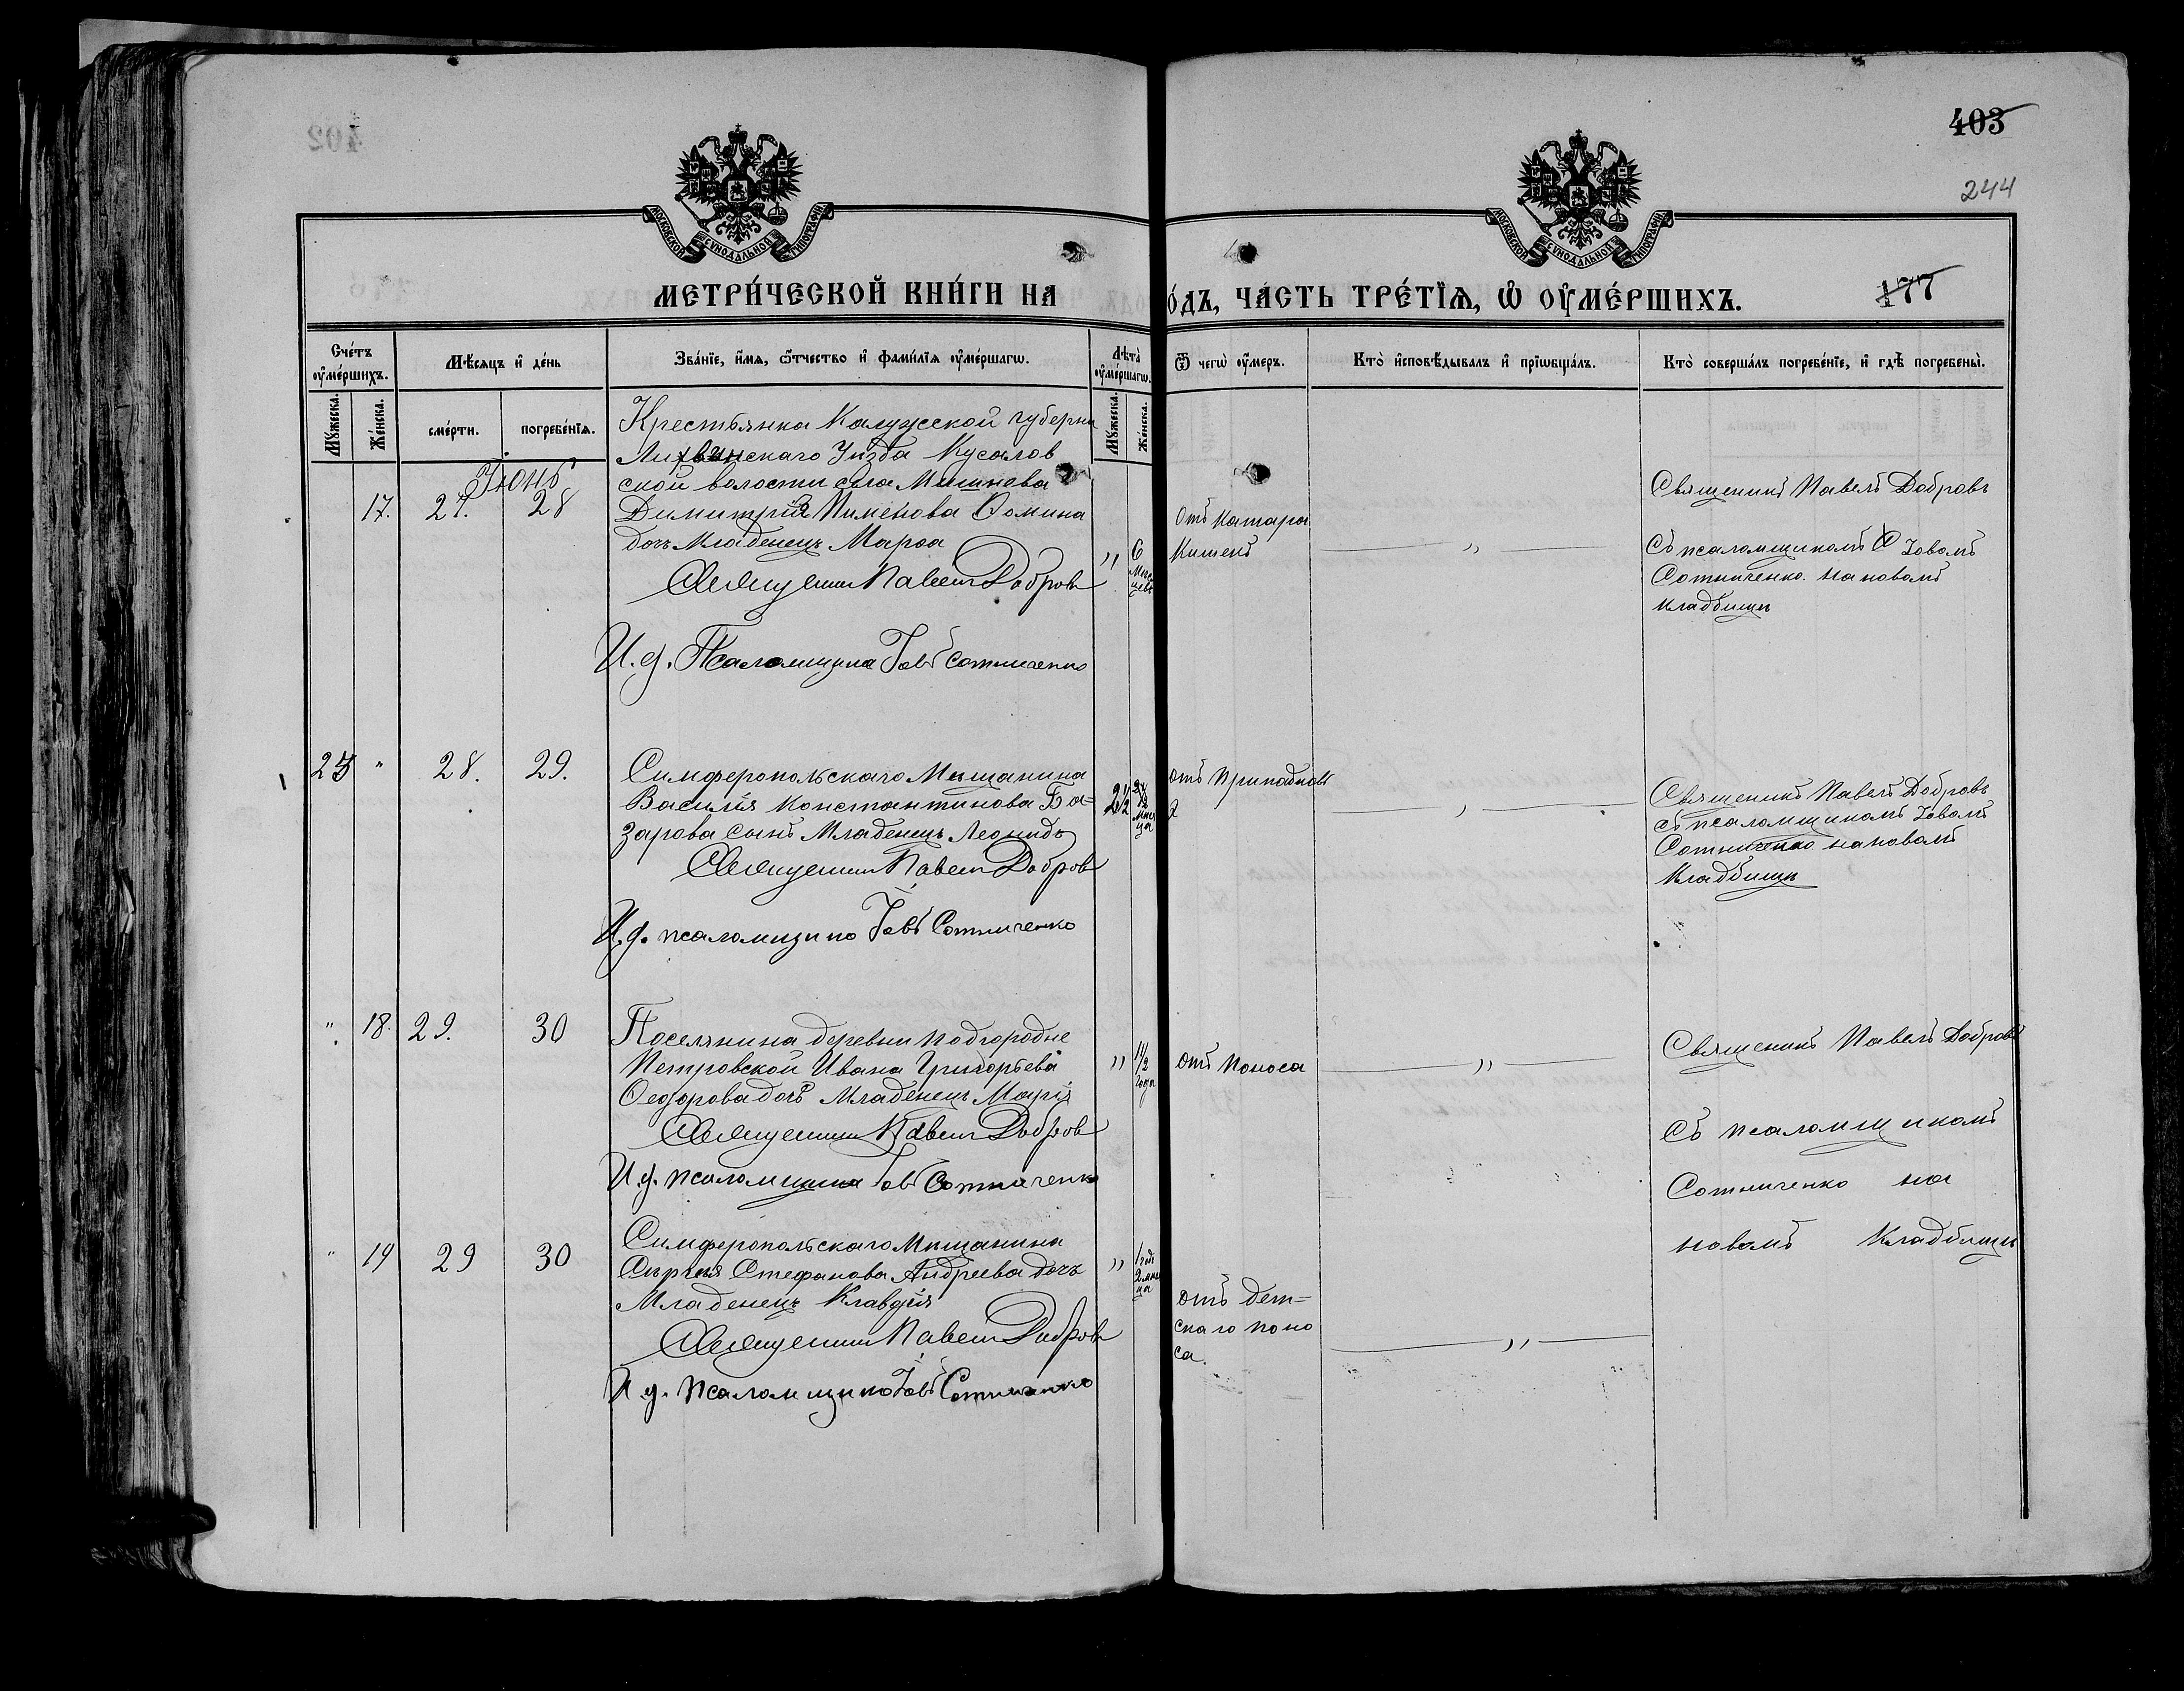 403
244
МОСКОВСКОЙ СѴНОДАЛЬНОЙ ТИПОГРАФІИ
МОСКОВСКОЙ СѴНОДАЛЬНОЙ ТИПОГРАФІИ
МЕТРИ́ЧЕСКОЙ КНИ́ГИ НА
О́ДЪ, ЧА́СТЬ ТРЕ́ТІѦ, Ѡ҆ ОУ҆МЕ́РШИХЪ.
177
Сче́тъ оу҆ме́ршихъ.
Мѣ́сяцъ и҆ де́нь
Зва́нїе, и҆́мѧ, ѻ҆́тчество и҆ фами́лїѧ оу҆ме́ршагѡ.
Лѣ́та̀ оу҆ме́ршагѡ.
Ѿ чегѡ̀ оу҆́меръ.
Кто̀ и҆сповѣ́дывалъ и҆ прїѡбща́лъ.
Кто̀ соверша́лъ погребе́нїе, и҆ гдѣ̀ погребены̀.
Мꙋ́жеска.
Же́нска.
сме́рти.
погребе́нїѧ.
Мꙋ́жеска.
Же́нска.
Іюнь
17. 27. 28
Крестьянка Калужской губерни
Лихвинскаго Уѣзда Кусалов
ской волости села Мишнева
Димитрія Пименова Ѳомина
дочь Младенецъ Марѳа
Священник Павел Добров
И. д. Псаломщика Іовъ Сотниченко
" 6 Мѣся цевъ
отъ Катара
Кишекъ
"
Священикъ Павелъ Добровъ
Съ псаломщикомъ Іовомъ
Сотниченко на новомъ
кладбищѣ
23 " 28. 29.
Симферопольскаго Мѣщанина
Василія Константинова Ба=
зарова сынъ Младенецъ Леонидъ
Священник Павел Добров
И. д. псаломщика Іовъ Сотниченко
2½ мѣся ца
отъ припадковъ
Священикъ Павелъ Добровъ
съ псаломщикомъ Іовомъ
Сотниченко на новомъ
Кладбищѣ
" 18. 29. 30
Поселянина деревни Подгородне
Петровской Ивана Григорьева
Ѳеодорова дочь Младенецъ Марія
Священник Павел Добров
И. д. псаломщика Іовъ Сотниченко
" 1½ года
отъ поноса
"
Священикъ Павелъ Добровъ
Съ псаломщикомъ
Сотниченко на
новомъ Кладбищѣ
" 19 29 30
Симферопольскаго Мѣщанина
Сѣргѣя Стефанова Андреева дочь
Младенецъ Клавдія
Священник Павел Добров
И. д. Псаломщика Іовъ Сотниченко
" 1 годъ 2 мѣся ца
отъ дет=
скаго поно
са.
"